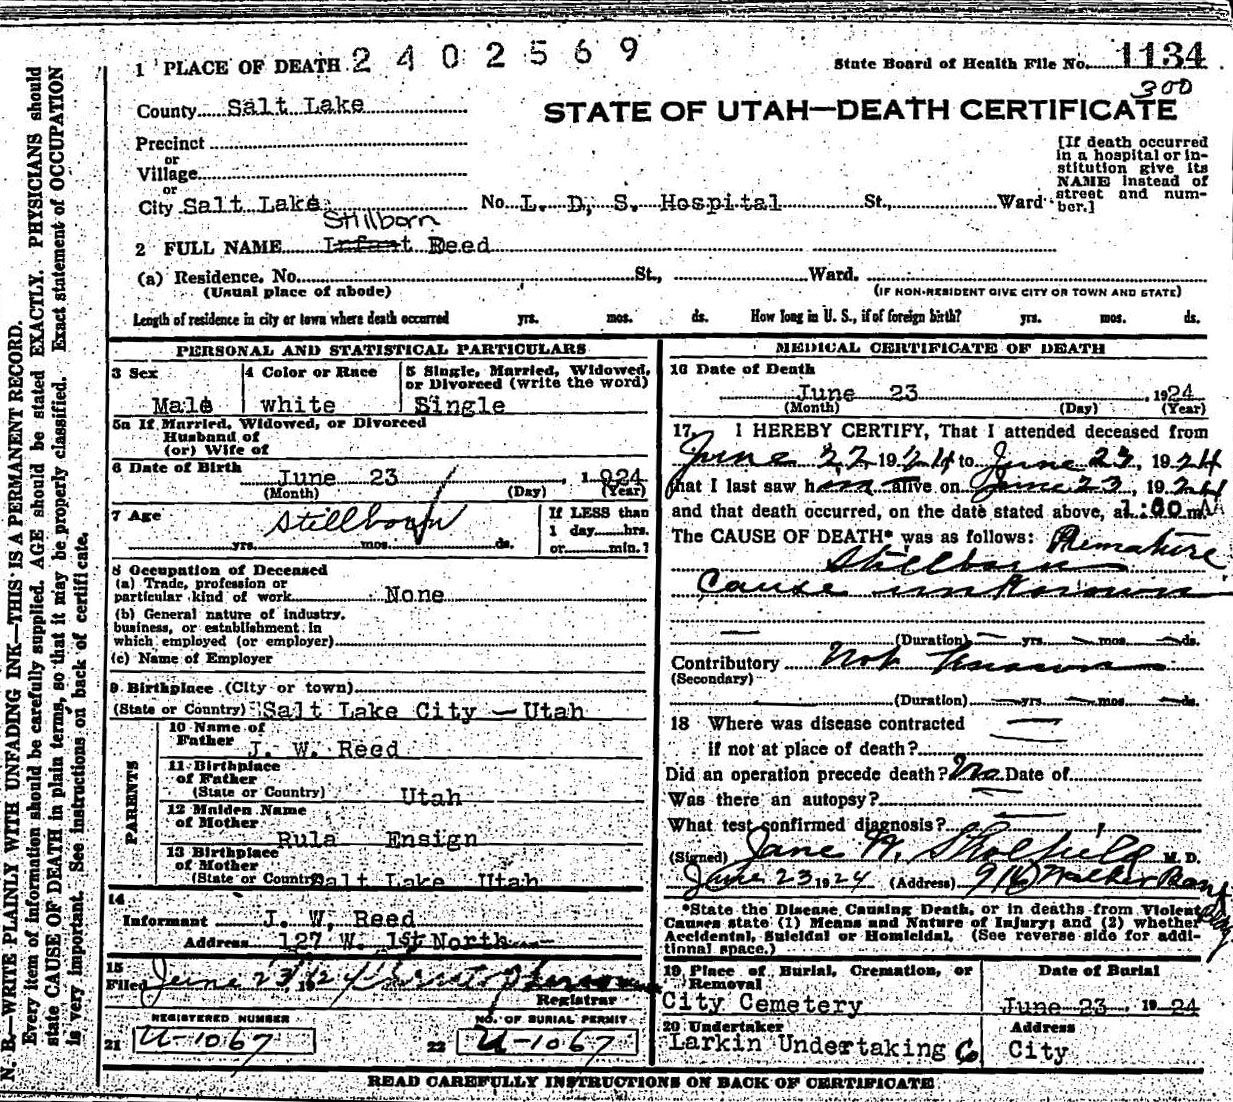 1 PLACE OF DEATH 2402569
State Board of Health File No. 1134
300
County Salt Lake
STATE OF UTAH—DEATH CERTIFICATE
Precinct
or
Village
or
City Salt Lake No. L. D. S. Hospital St., Ward
[If death occurred
in a hospital or in-
stitution give its
NAME instead of
street and num-
ber.]
Stillborn
2 FULL NAME Infant Reed
(a) Residence. No. St., Ward.
(Usual place of abode) (IF NON-RESIDENT GIVE CITY OR TOWN AND STATE)
Length of residence in city or town where death occurred yrs. mos. ds. How long in U. S., if of foreign birth? yrs. mos. ds.
PERSONAL AND STATISTICAL PARTICULARS
3 Sex 4 Color or Race 5 Single, Married, Widowed,
or Divorced (write the word)
Male white Single
5a If Married, Widowed, or Divorced
Husband of
(or) Wife of
6 Date of Birth
June 23, 1924
(Month) (Day) (Year)
7 Age Stillborn If LESS than
1 day hrs.
yrs. mos. ds. or min.?
8 Occupation of Deceased
(a) Trade, profession or
particular kind of work None
(b) General nature of industry,
business, or establishment in
which employed (or employer)
(c) Name of Employer
9 Birthplace (City or town)
(State or Country) Salt Lake City — Utah
PARENTS
10 Name of
Father J. W. Reed
11 Birthplace
of Father
(State or Country) Utah
12 Maiden Name
of Mother
Rula Ensign
13 Birthplace
of Mother
(State or Country) Salt Lake Utah
14
Informant J. W. Reed
Address 127 W. 1st North
15
Filed June 23, 1924
Registrar
REGISTERED NUMBER NO. OF BURIAL PERMIT
21 U-1067 22 U-1067
MEDICAL CERTIFICATE OF DEATH
16 Date of Death
June 23, 1924
(Month) (Day) (Year)
17 I HEREBY CERTIFY, That I attended deceased from
June 22 1924 to June 23, 1924
that I last saw him alive on June 23, 1924
and that death occurred, on the date stated above, at 1:00 m.
The CAUSE OF DEATH* was as follows: Premature
Stillborn
Cause unknown
(Duration) yrs. mos. ds.
Contributory Not Known
(Secondary)
(Duration) yrs. mos. ds.
18 Where was disease contracted
if not at place of death?
Did an operation precede death? No Date of
Was there an autopsy?
What test confirmed diagnosis?
(Signed) Jane W. Skolfield M. D.
June 23 1924 (Address) 916 Walker Bank Bldg
*State the Disease Causing Death, or in deaths from Violent
Causes state (1) Means and Nature of Injury; and (2) whether
Accidental, Suicidal or Homicidal. (See reverse side for addi-
tional space.)
19 Place of Burial, Cremation, or Date of Burial
Removal
City Cemetery June 23, 1924
20 Undertaker Address
Larkin Undertaking Co City
READ CAREFULLY INSTRUCTIONS ON BACK OF CERTIFICATE
N. B.—WRITE PLAINLY WITH UNFADING INK—THIS IS A PERMANENT RECORD.
Every item of information should be carefully supplied. AGE should be stated EXACTLY. PHYSICIANS should
state CAUSE OF DEATH in plain terms, so that it may be properly classified. Exact statement of OCCUPATION
is very important. See instructions on back of certificate.